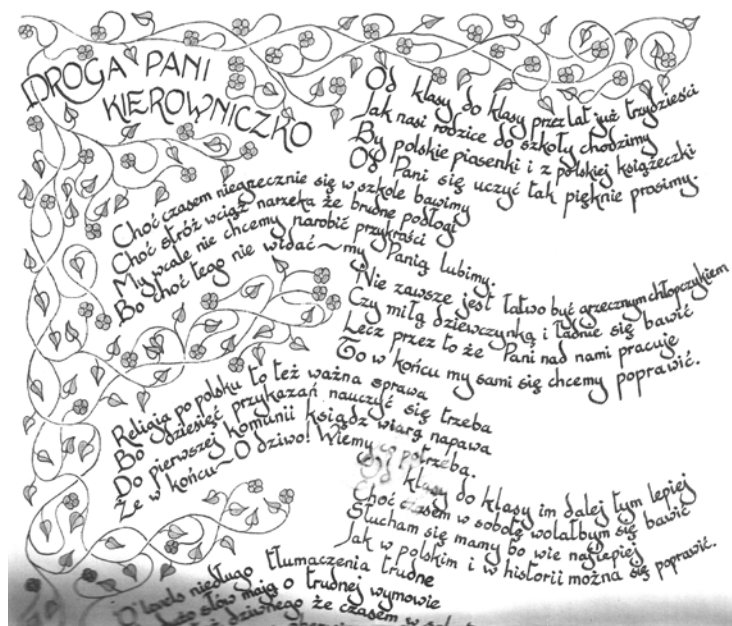 DROGA PANI
KIEROWNICZKO
Od klasy do klasy przez lat już trzydzieści
Jak nasi rodzice do szkoły chodzimy
By polskie piasenki i z polskiej książeczki
Od Pani się uczyć tak pięknie prosimy.
Choć czasem niegrzecznie się w szkole bawimy
Choć stróż wciąż narzeka że brudne podłogi
My wcale nie chcemy narobić przykrości
Bo choć tego nie widać~my Panią lubimy.
Nie zawsze jest łatwo być grzecznym chłopczykiem
Czy miłą dziewczynką i ładnie się bawić
Lecz przez to że Pani nad nami pracuje
To w końcu my sami się chcemy poprawić.
Religia po polsku to też ważna sprawa
Bo dziesięć przykazań nauczyć się trzeba
Do pierwszej komunii ksiądz wiarą napawa
Że w końcu~O dziwo! Wiemy potrzeba.
klasy do klasy im dalej tym lepiej
Choć czasem w sobotę wolałbym się bawić
Słucham się mamy bo wie najlepiej
Jak w polskim i w historii można się poprawić.
O'levels niedługo tłumaczenia trudne
słów mają o trudnej wymowie
dziwnego że czasem w